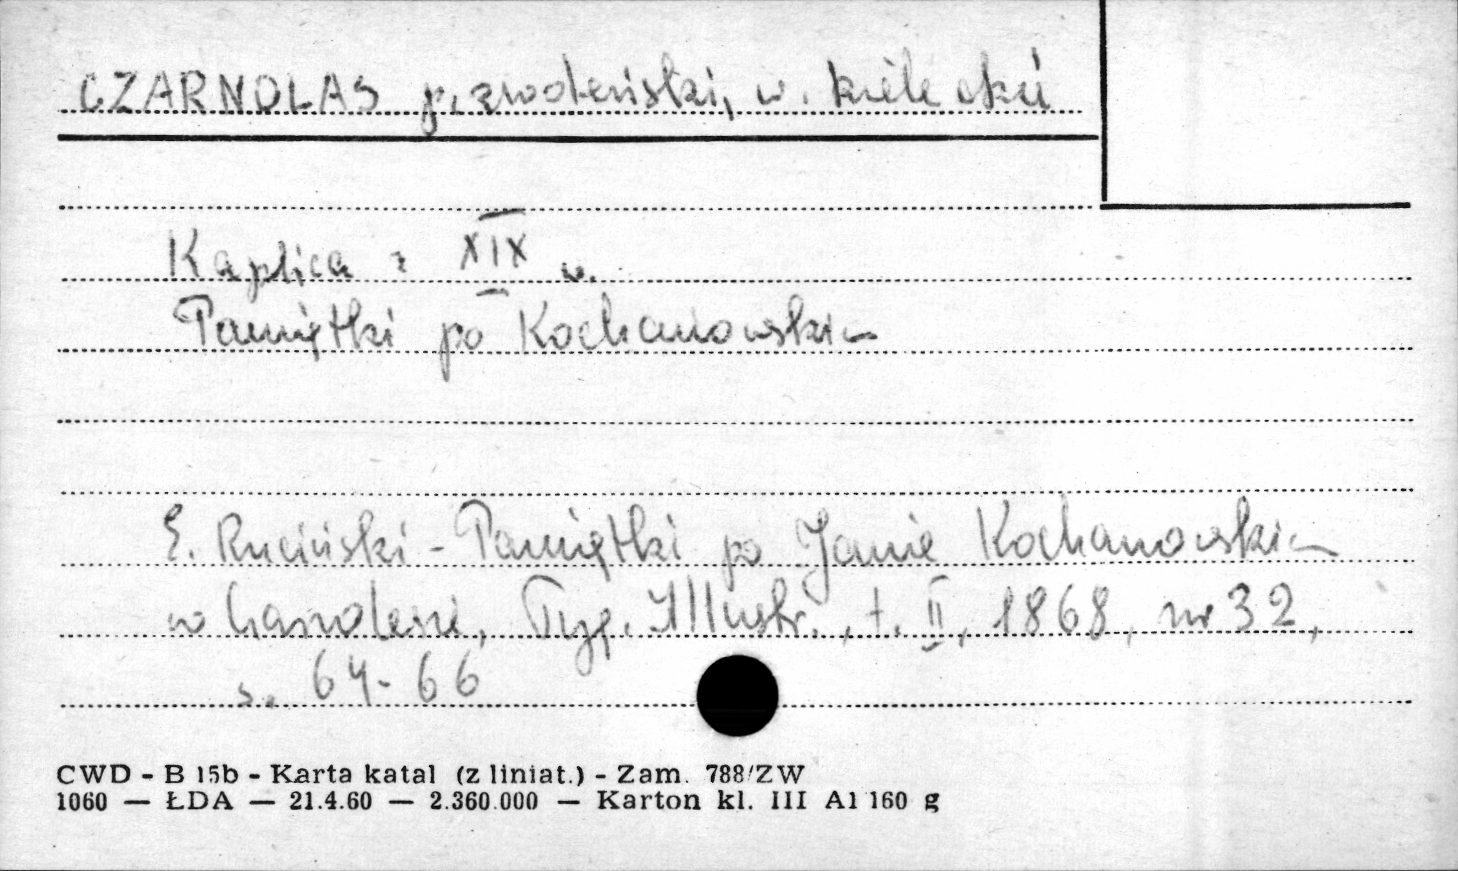 CZARNOLAS p. zwoleński, w. kieleckie
Kaplica z XIX w.
Pamiętki po Kochanowskim
E. Ruciński - Pamiętki po Janie Kochanowskim
w Czarnolesie, Tyg. Illustr., t. II, 1868, nr 32,
s. 64-66
CWD - B 15b - Karta katal (z liniat.) - Zam. 788/ZW
1060 — ŁDA — 21.4.60 — 2.360.000 — Karton kl. III A1 160 g